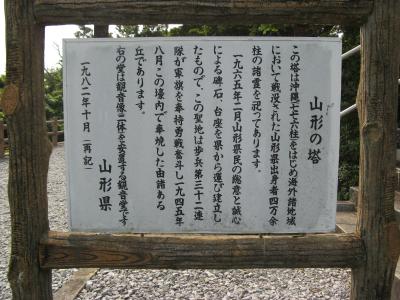 山形の塔
この塔は沖縄七七六柱をはじめ海外諸地域
において戦没された山形県出身者四万余
柱の諸霊を祀ってあります。
一九六五年二月山形県民の総意と誠心
による碑石、台座を県から運び建立し
たもので、この聖地は歩兵第三十二連
隊が軍旗を奉持勇戦奮斗し一九四五年
八月この壕内で奉焼した由諸ある
丘であります。
右の堂は観音像二体を安置する観音堂です
一九八二年十月（再記）
山形県